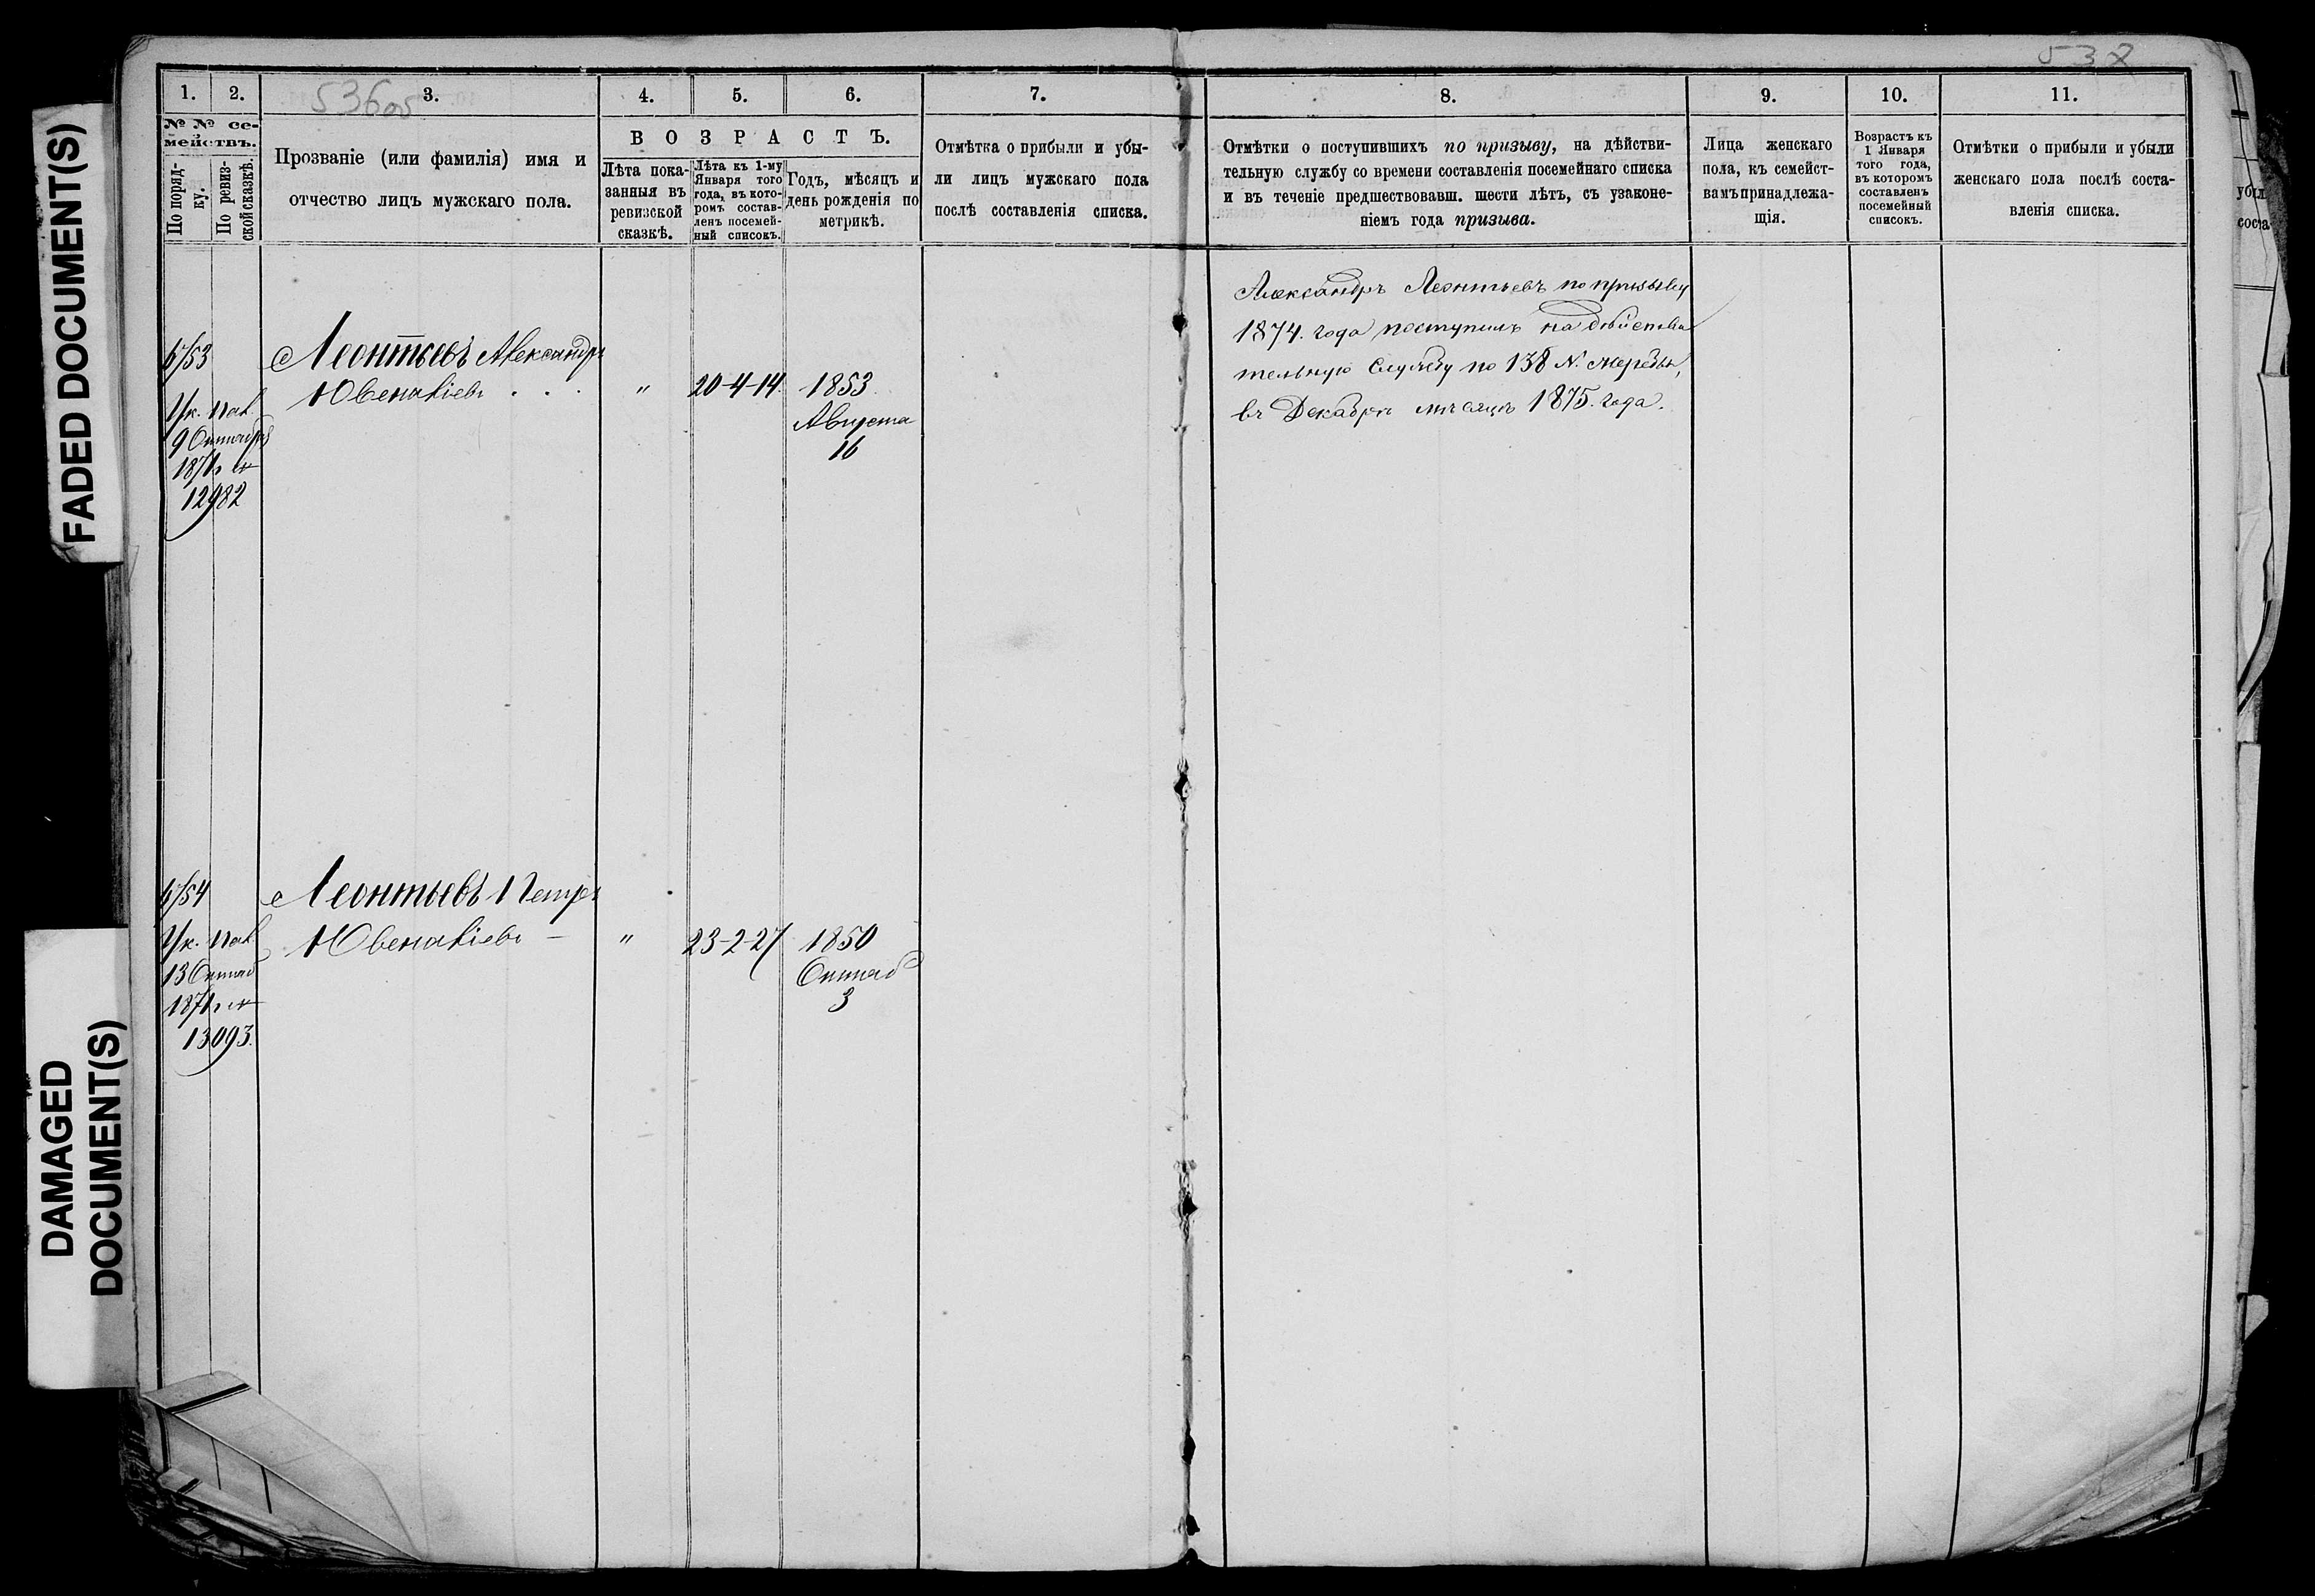 FADED DOCUMENT(S)
DAMAGED
DOCUMENT(S)
536об
1.
2.
3.
4.
5.
6.
7.
№ № се-
мействъ.
По поряд-
ку.
По ревиз-
ской сказкѣ.
Прозваніе (или фамилія) имя и
отчество лицъ мужскаго пола.
ВОЗРАСТЪ.
Лѣта пока-
занныя въ
ревизской
сказкѣ.
Лѣта къ 1-му
Января того
года, въ кото-
ромъ состав-
ленъ посемей-
ный списокъ.
Годъ, мѣсяцъ и
день рожденія по
метрикѣ.
Отмѣтка о прибыли и убы-
ли лицъ мужскаго пола
послѣ составленія списка.
Леонтьевъ Александръ
Ювеналіевъ . . .
"
20-4-14.
1853.
Августа
16
Ук. пал.
9 Октября
1871 г. №
12982
Леонтьевъ Петръ
Ювеналіевъ —
"
23-2-27
1850
Октяб
3
Ук. пал.
13 Октяб
1871 г. №
13093.
537
8.
9.
10.
11.
Отмѣтки о поступившихъ по призыву, на дѣйстви-
тельную службу со времени составленія посемейнаго списка
и въ теченіе предшествовавш. шести лѣтъ, съ узаконе-
ніемъ года призыва.
Лица женскаго
пола, къ семейст-
вамъ принадлежа-
щія.
Возрастъ къ
1 Января
того года,
въ которомъ
составленъ
посемейный
списокъ.
Отмѣтки о прибыли и убыли
женскаго пола послѣ соста-
вленія списка.
Александръ Леонтьевъ по призыву
1874. года поступилъ на дѣйстви
тельную службу по 138 №. жеребья,
въ Декабрѣ мѣсяцѣ 1875. года.